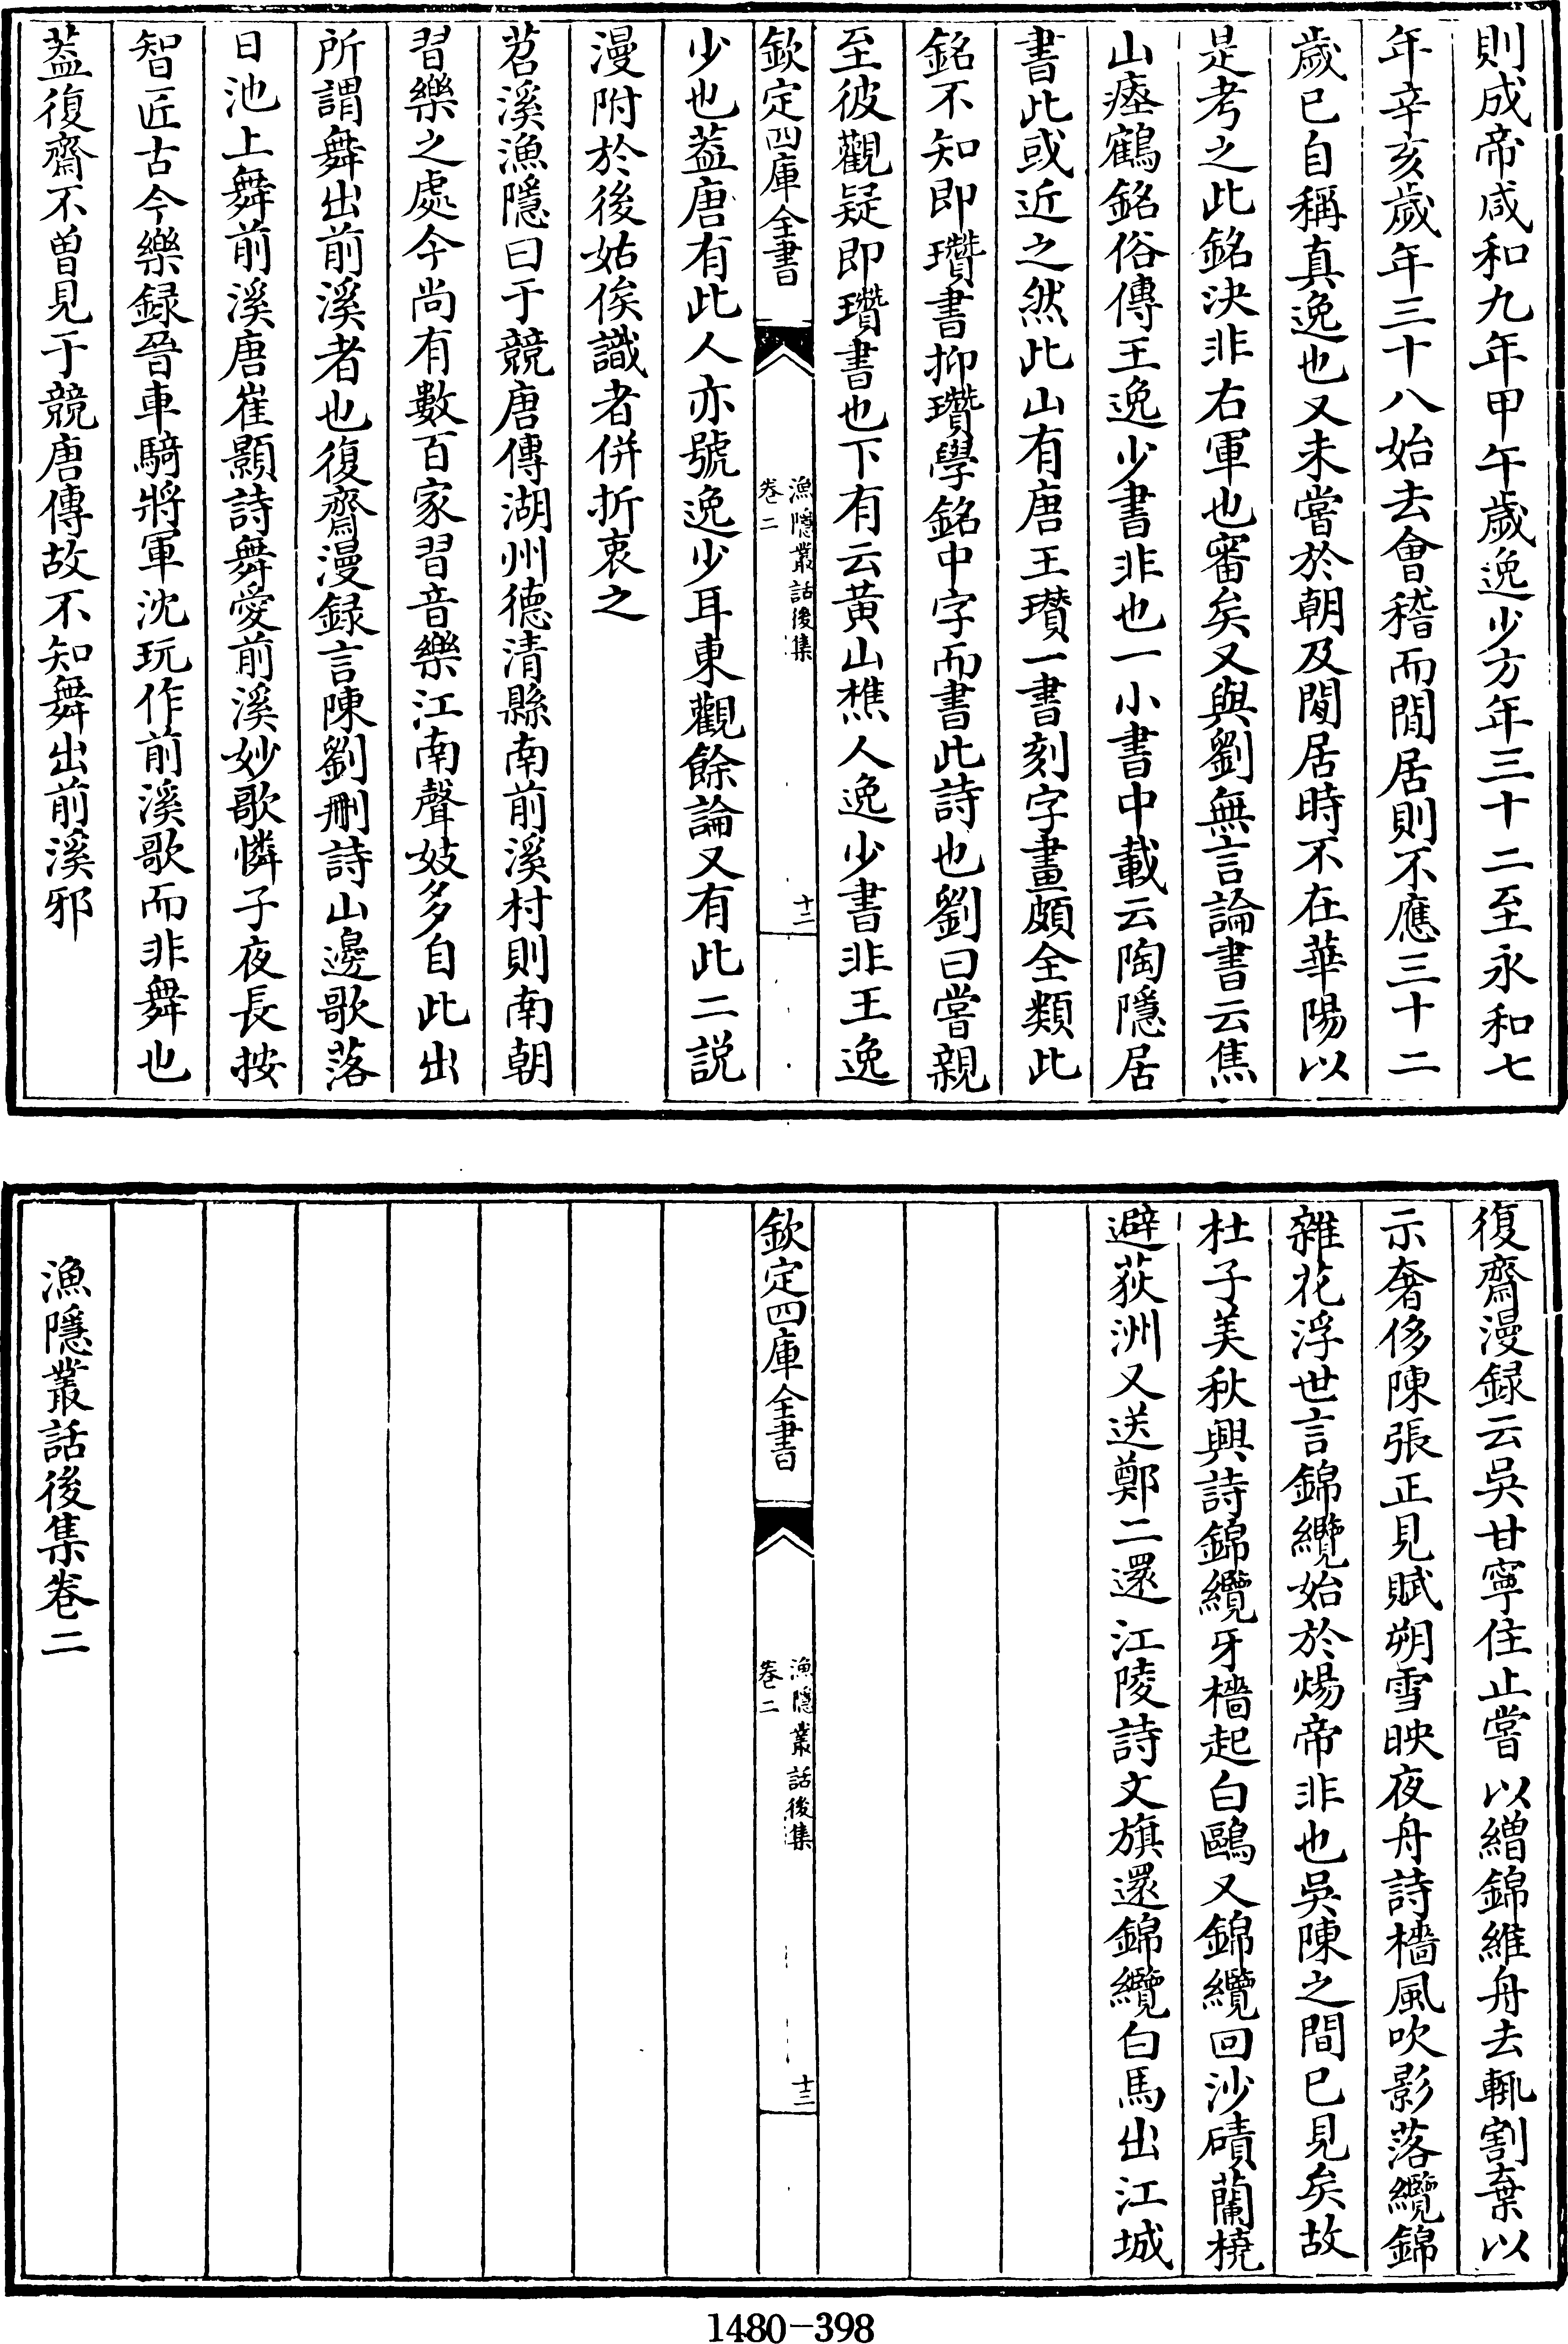 則成帝咸和九年甲午歲逸少方年三十二至永和七
年辛亥歲年三十八始去會稽而閒居則不應三十二
歲已自稱真逸也又未嘗於朝及閒居時不在華陽以
是考之此銘決非右軍也審矣又與劉無言論書云焦
山瘞鶴銘俗傳王逸少書非也一小書中載云陶隱居
書此或近之然此山有唐王瓚一書刻字畫頗全類此
銘不知即瓚書抑瓚學銘中字而書此詩也劉曰嘗親
至彼觀疑即瓚書也下有云黃山樵人逸少書非王逸
欽定四庫全書
漁隱叢話後集
卷二
十二
少也葢唐有此人亦號逸少耳東觀餘論又有此二說
漫附於後姑俟識者併折衷之
苕溪漁隱曰于競唐傳湖州德清縣南前溪村則南朝
習樂之處今尚有數百家習音樂江南聲妓多自此出
所謂舞出前溪者也復齋漫録言陳劉刪詩山邊歌落
日池上舞前溪唐崔顥詩舞愛前溪妙歌憐子夜長按
智匠古今樂録晉車騎將軍沈玩作前溪歌而非舞也
葢復齋不曾見于競唐傳故不知舞出前溪邪
復齋漫録云吳甘寧住止嘗以繒錦維舟去輒割棄以
示奢侈陳張正見賦朔雪映夜舟詩檣風吹影落纜錦
雜花浮世言錦纜始於煬帝非也吳陳之間已見矣故
杜子美秋興詩錦纜牙檣起白鷗又錦纜回沙磧蘭橈
避荻洲又送鄭二還江陵詩文旗還錦纜白馬出江城
欽定四庫全書
漁隱叢話後集
卷二
十三
漁隱叢話後集卷二
1480-398